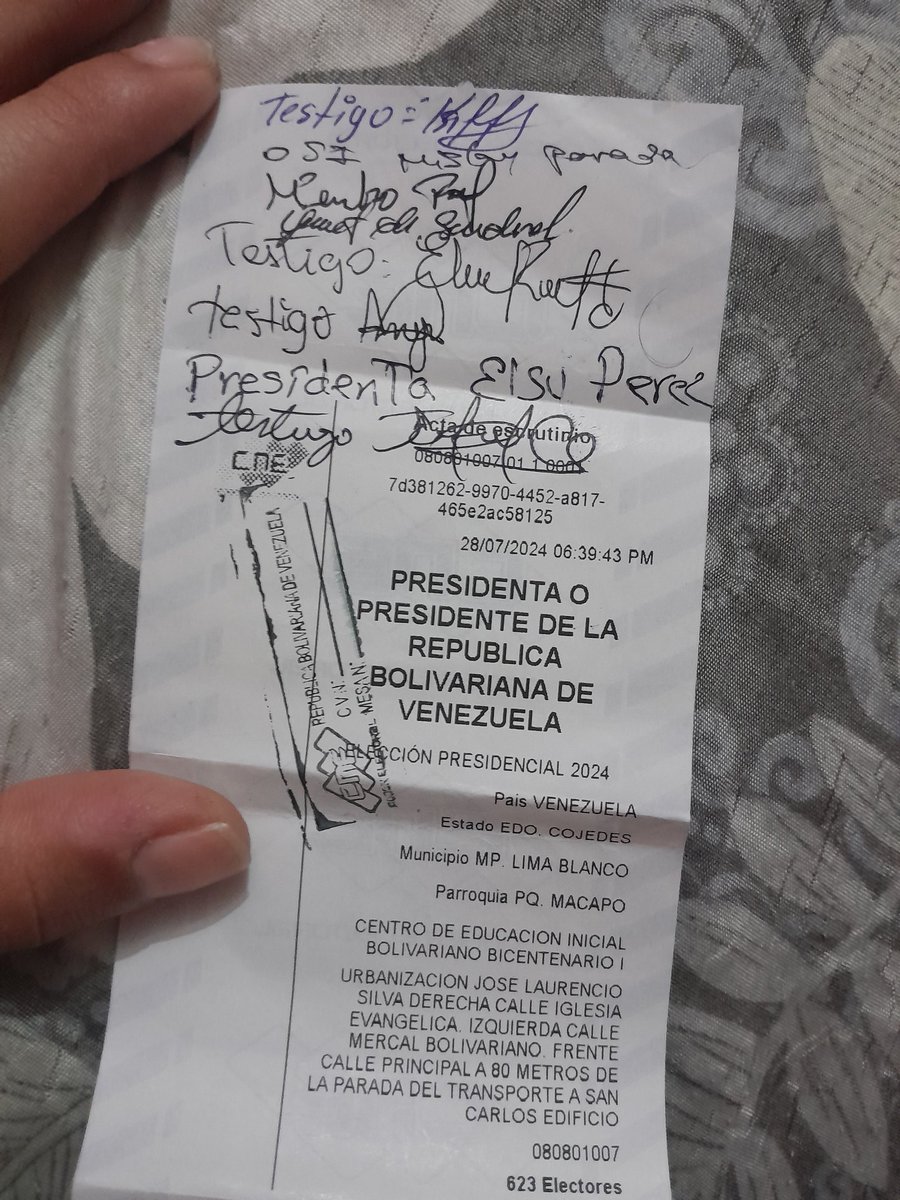 Testigo =
OSI parada
Miembro
Testigo:
testigo
Presidenta Elsu Perez
testigo
Acta de escrutinio
7d381262-9970-4452-a817-
465e2ac58125
28/07/2024 06:39:43 PM
CNE
REPUBLICA BOLIVARIANA DE VENEZUELA
C.V.N°:
MESA N°:
CNE
PRESIDENTA O
PRESIDENTE DE LA
REPUBLICA
BOLIVARIANA DE
VENEZUELA
ELECCIÓN PRESIDENCIAL 2024
País VENEZUELA
Estado EDO. COJEDES
Municipio MP. LIMA BLANCO
Parroquia PQ. MACAPO
CENTRO DE EDUCACION INICIAL
BOLIVARIANO BICENTENARIO I
URBANIZACION JOSE LAURENCIO
SILVA DERECHA CALLE IGLESIA
EVANGELICA. IZQUIERDA CALLE
MERCAL BOLIVARIANO. FRENTE
CALLE PRINCIPAL A 80 METROS DE
LA PARADA DEL TRANSPORTE A SAN
CARLOS EDIFICIO
080801007
623 Electores